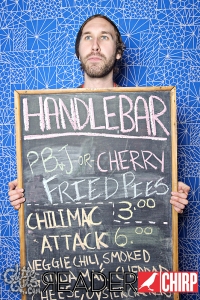 HANDLEBAR
PB&J OR CHERRY
FRIED PIES
CHILIMAC 3.00
ATTACK 6.00
VEGGIE CHILI, SMOKED
CHEDDAR
READER CHIRP
CHEESE,